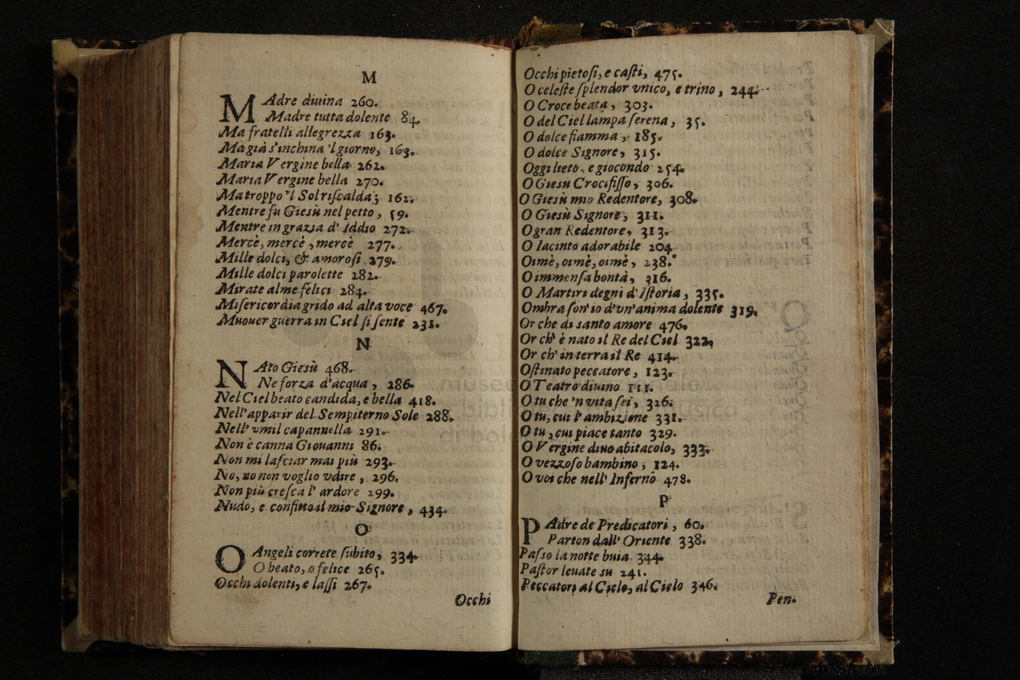 M
MAdre diuina 260.
Madre tutta dolente 84.
Ma fratelli allegrezza 163.
Ma già s'inchina 'l giorno, 163.
Maria Vergine bella 262.
Maria Vergine bella 270.
Ma troppo 'l Sol riscalda; 162.
Mentre fu Giesù nel petto, 59.
Mentre in grazia d' Iddio 272.
Mercè, mercè, mercè 277.
Mille dolci, & amorosi 279.
Mille dolci parolette 282.
Mirate alme felici 284.
Misericordia grido ad alta voce 467.
Muouer guerra in Ciel si sente 231.
N
NAto Giesù 468.
Ne forza d'acqua, 286.
Nel Ciel beato candida, e bella 418.
Nell' apparir del Sempiterno Sole 288.
Nell' vmil capannella 291.
Non è canna Giouanni 86.
Non mi lasciar mai più 293.
No, no non voglio vdire, 296.
Non più cresca l' ardore 299.
Nudo, e confitto il mio Signore, 434.
O
O Angeli correte subito, 334.
O beato, o felice 265.
Occhi dolenti, e lassi 267.
Occhi
Occhi pietosi, e casti, 475.
O celeste splendor vnico, e trino, 244.
O Croce beata, 303.
O del Ciel lampa serena, 35.
O dolce fiamma, 185.
O dolce Signore, 315.
Oggi lieto, e giocondo 254.
O Giesu Crocifisso, 306.
O Giesù mio Redentore, 308.
O Giesù Signore, 311.
O gran Redentore, 313.
O Iacinto adorabile 204
Oimè, oimè, oimè, 238.
O immensa bontà, 316.
O Martiri degni d' Istoria, 335.
Ombra son'io d'vn'anima dolente 319.
Or che di santo amore 476.
Or ch' è nato il Re del Ciel 322,
Or ch' in terra il Re 414.
Ostinato peccatore, 123.
O Teatro diuino 111.
O tu che 'n vita sei, 326.
O tu, cui l' ambizione 331.
O tu, cui piace tanto 329.
O Vergine diuo abitacolo, 333.
O vezzoso bambino, 124.
O voi che nell' Inferno 478.
P
PAdre de Predicatori, 60.
Parton dall' Oriente 338.
Passo la notte buia 344.
Pastor leuate su 241.
Peccatori al Cielo, al Cielo 346.
Pen.